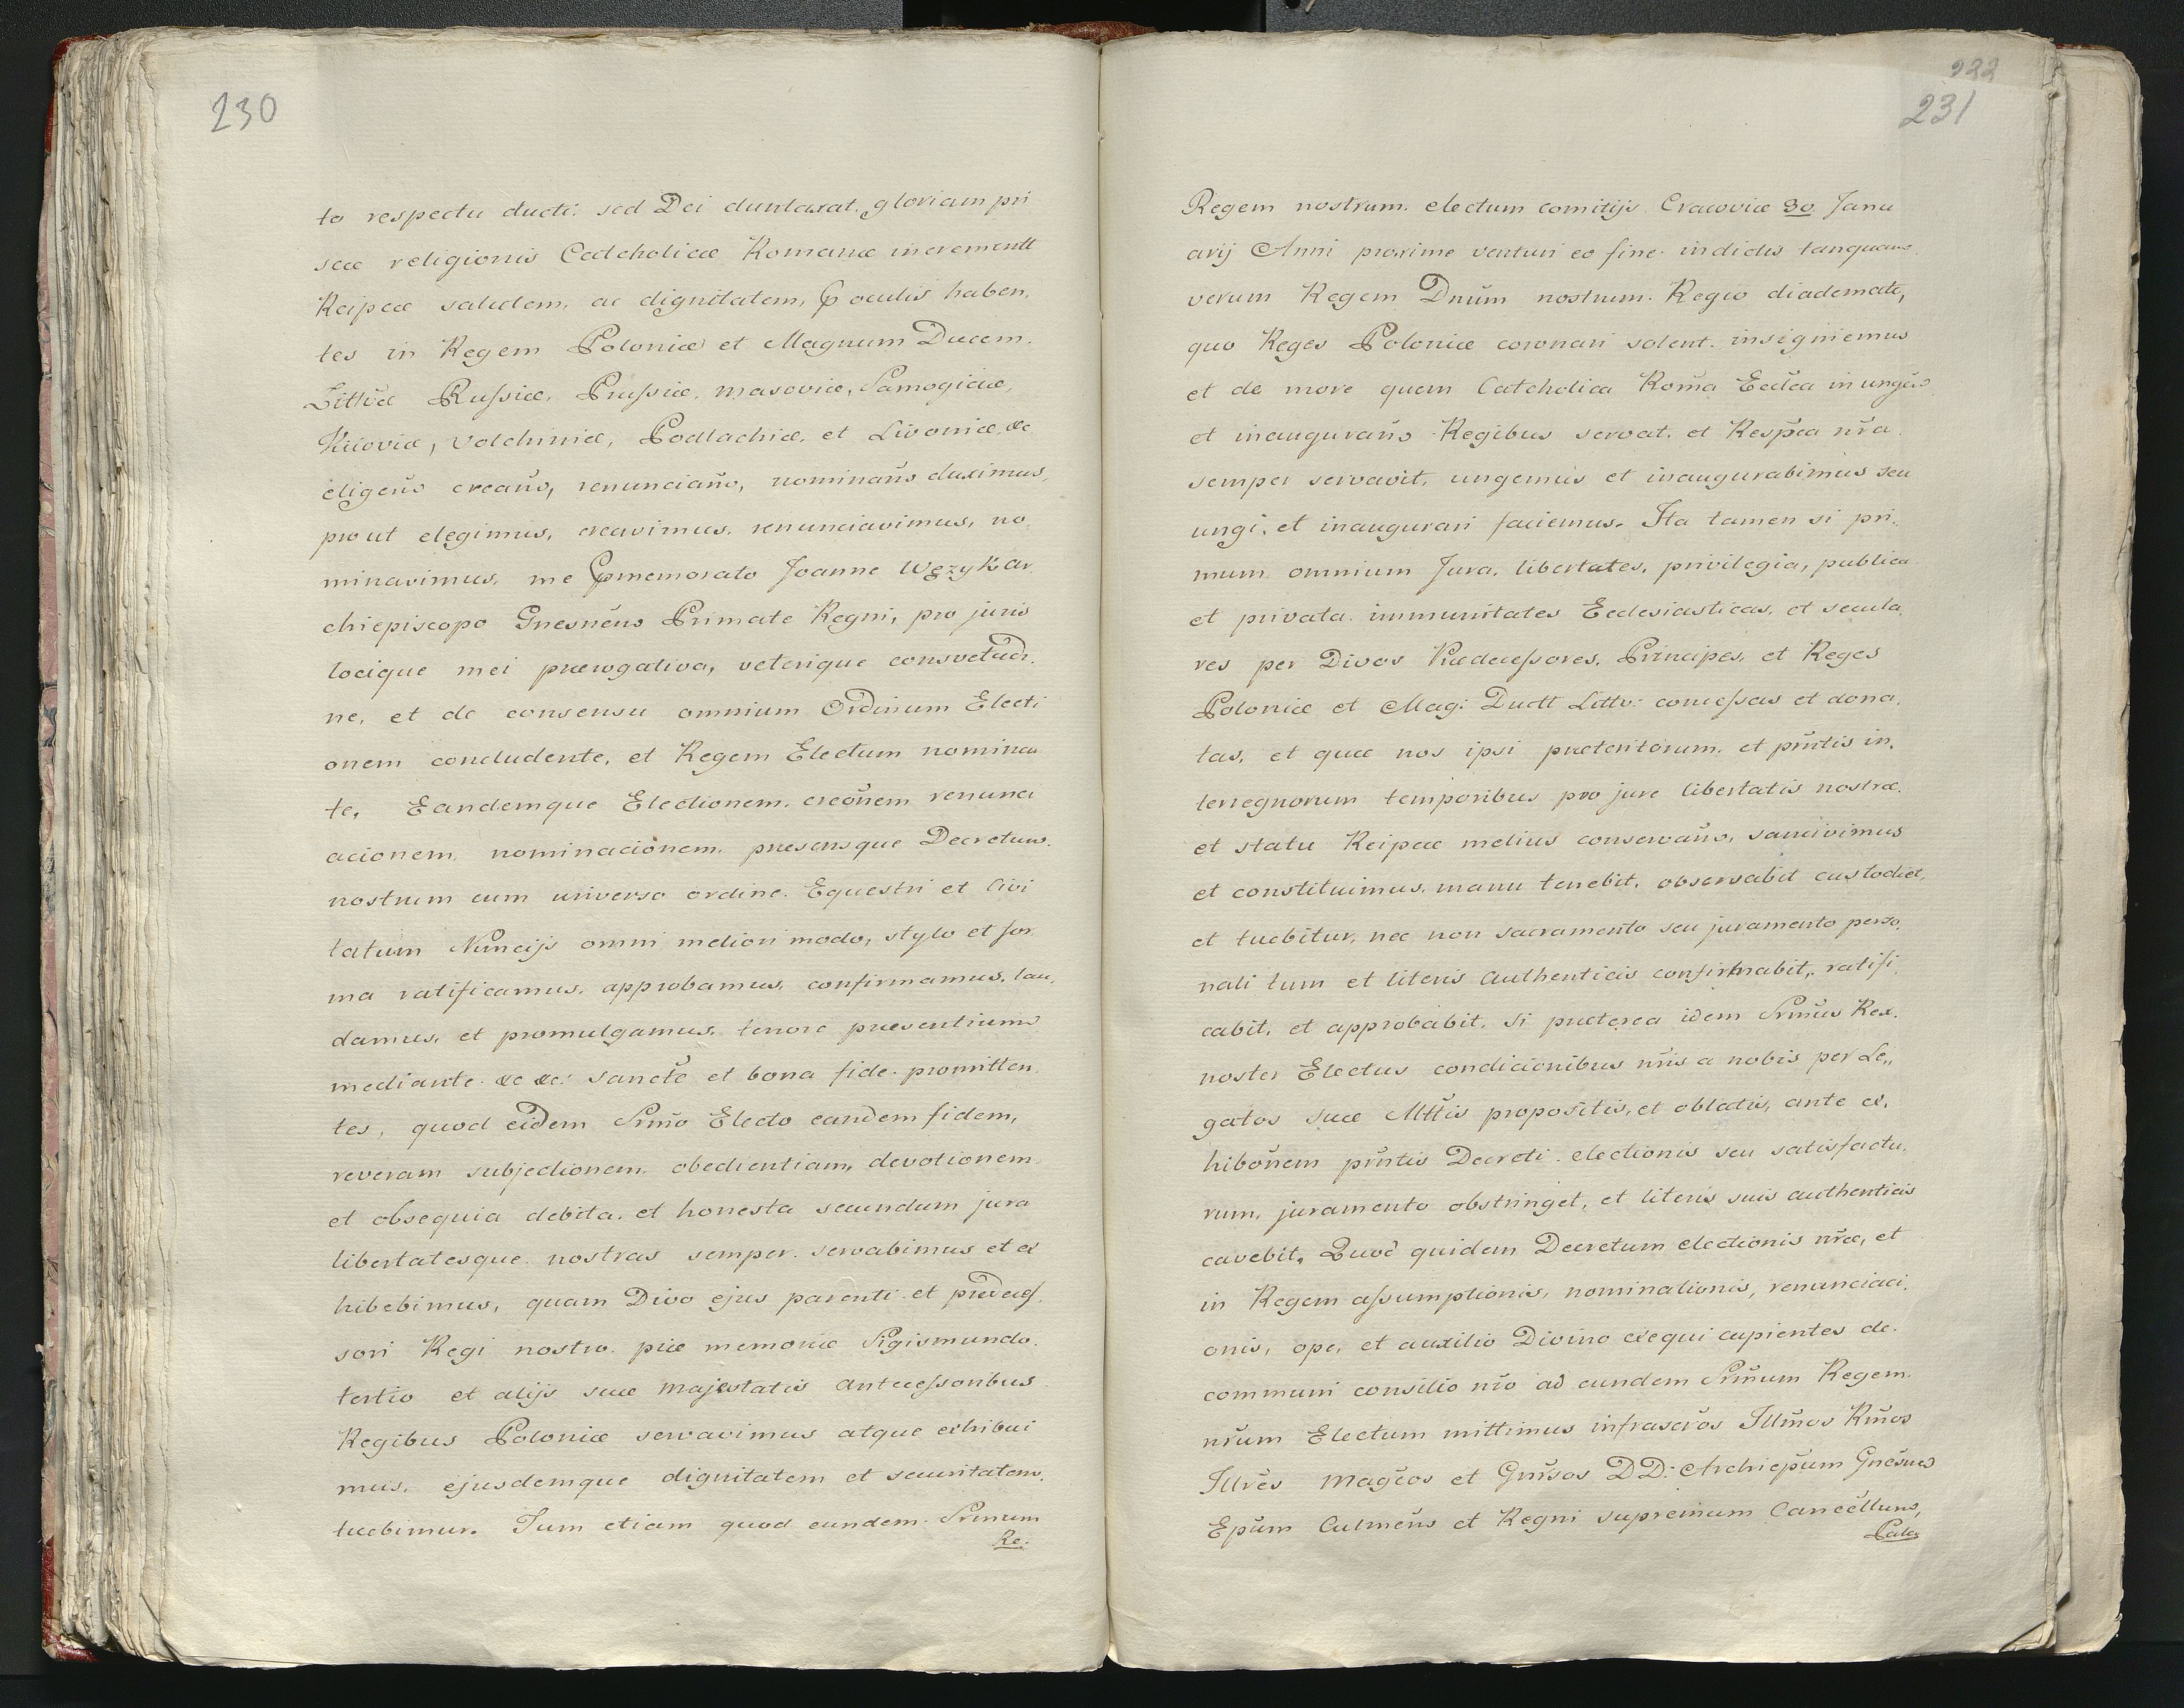 230
to respectu ducti: sed Dei duntaxat. gloriam pri
scæ religionis Catcholicæ Romanæ incrementt
Reipcæ saludem, ac dignitatem, p oculis haben,
tes in Regem Poloniæ et Magnum Ducem.
Littvæ Russiæ, Prussiæ, masoviæ, Samogiciæ,
Kiioviæ, Volchiniæ, Podlachiæ, et Livoniæ, &c
eligeño creaño, renunciaño, nominaño duximus,
prout elegimus, creavimus, renunciavimus, no,
minavimus, me pmemorato Joanne Węzyk ar,
chiepiscopo Gnesneño Primate Regni, pro juris
locique mei prærogativa, veterique consvetudi,
ne, et de consensu omnium Ordinum Electi
onem concludente, et Regem Electum nomina
te, Eandemque Electionem, creonem renunci
acionem, nominacionem, præsensque Decretum.
nostrum cum universo ordine. Equestri et Civi
tatum Nuncijs omni meliori modo, stylo et for
ma ratificamus, approbamus, confirmamus, lau,
damus, et promulgamus, tenore præsentiums
mediante &c &c: sancte et bona fide promitten
tes, quod eidem Srmo Electo eandem fidem,
reveram subjectionem, obedientiam, devotionem
et obsequia debita, et honesta secundum jura
libertatesque nostras semper servabimus et ex
hibebimus, quam Divo ejus parenti et prædeces,
sori Regi nostro piæ memoriæ Sigismundo
tertio et alijs suæ majestatis antecessoribus
Regibus Poloniæ servavimus atque exhibui
mus, ejusdemque dignitatem et securitatem
tuebimur. Tum etiam quod eundem Srmum
Re:
231
Regem nostrum electum comitijs Cracoviæ 30 Janu
arij Anni proxime venturi eo fine indictis tanquam
verum Regem Dnum nostrum. Regio diademate,
quo Reges Poloniæ coronari solent. insigniemus
et de more quem Catcholica Roma Ecclea in ungeño
et inauguraño Regibus servat, et Respca nra
semper servavit, ungemus et inaugurabimus seu
ungi, et inaugurari faciemus. Ita tamen si pri,
mum omnium Jura, libertates, privilegia, publica
et privata immunitates Ecclesiasticas, et secula
res per Divos Prædecessores, Principes, et Reges
Poloniæ et Mag: Ductt Littv: concessas et dona,
tas, et quæ nos ipsi præteritorum, et prntis in,
terregnorum temporibus pro jure libertatis nostræ,
et statu Reipcæ melius conservaño, sancivimus
et constituimus, manu tenebit, observabit custodiet,
et tuebitur, nec non sacramento seu juramento perso,
nali tum et literis authenticis confirmabit, ratifi
cabit, et approbabit. Si præterea idem Srmus Rex.
noster Electus condicionibus nris a nobis per Le,,
gatos suæ Mttis propositis, et oblatis, ante ex,
hibonem prntis Decreti electionis seu satisfactu,
rum, juramento obstringet, et literis suis authenticis
cavebit. Quod quidem Decretum electionis nræ, et
in Regem assumptionis, nominationis, renunciaci
onis, ope, et auxilio Divino exequi cupientes de
communi consilio nro ad eundem Srmum Regem
nrum Electum mittimus infrascros Illmos Rmos
Illres Magcos et Gnrsos DD: Archiepum Gnesneno
Epum Culmeño et Regni supremum Cancelluno,
Pala